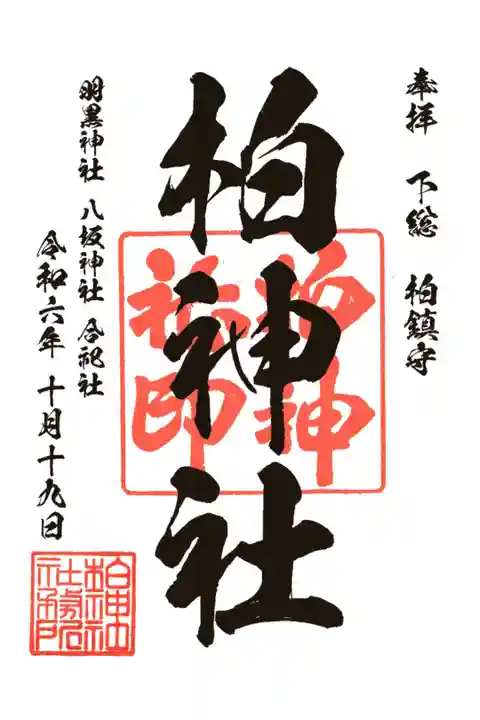 奉拝 下総 柏鎮守
柏神社
柏神社印
羽黒神社 八坂神社 合祀社
令和六年 十月十九日
柏神社社務所印